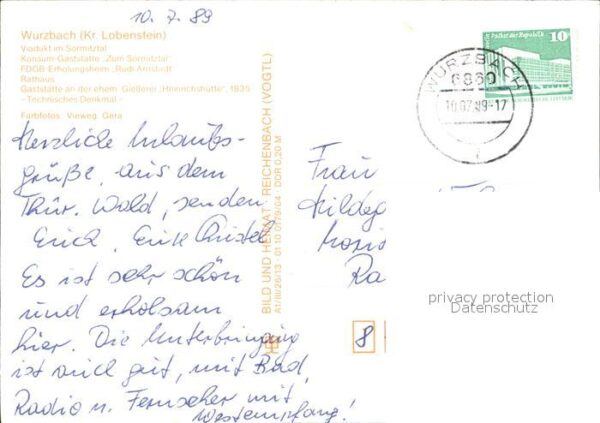 10.7.89
Wurzbach (Kr. Lobenstein)
Viadukt im Sormitztal
Konsum-Gaststätte „Zum Sormitztal"
FDGB-Erholungsheim „Rudi Arnstadt"
Rathaus
Gaststätte an der ehem. Gießerei „Heinrichshütte", 1835
–Technisches Denkmal–
Farbfotos: Vieweg, Gera
Herzliche Urlaubs-
grüße, aus dem
Thür. Wald, senden
Erich, Erika Christel
Es ist sehr schön
und erholsam
hier. Die Unterbringung
ist auch gut, mit Bad,
Radio u. Fernseher mit
Westempfang!
BILD UND HEIMAT REICHENBACH (VOGTL)
A1/III/26/13 · 01 10 01 79/04 · DDR 0,20 M
Palast der Republik
10
WURZBACH
6860
10.07.89-17
Frau
Hildeg
Ra
8
privacy protection
Datenschutz